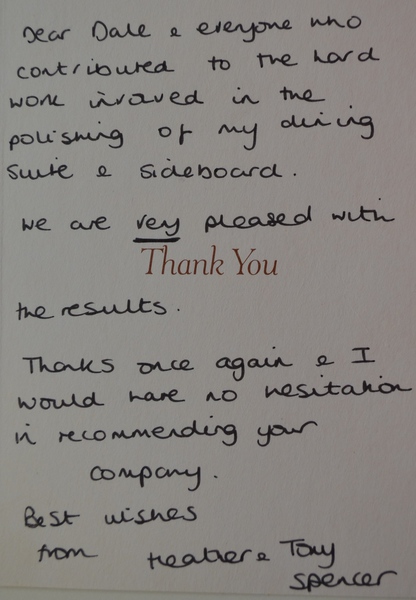 Dear Dale & everyone who
contributed to the hard
work involved in the
polishing of my dining
suite & sideboard.
We are very pleased with
Thank You
the results.
Thanks once again & I
would have no hesitation
in recommending your
company.
Best wishes
from Heather & Tony
Spencer